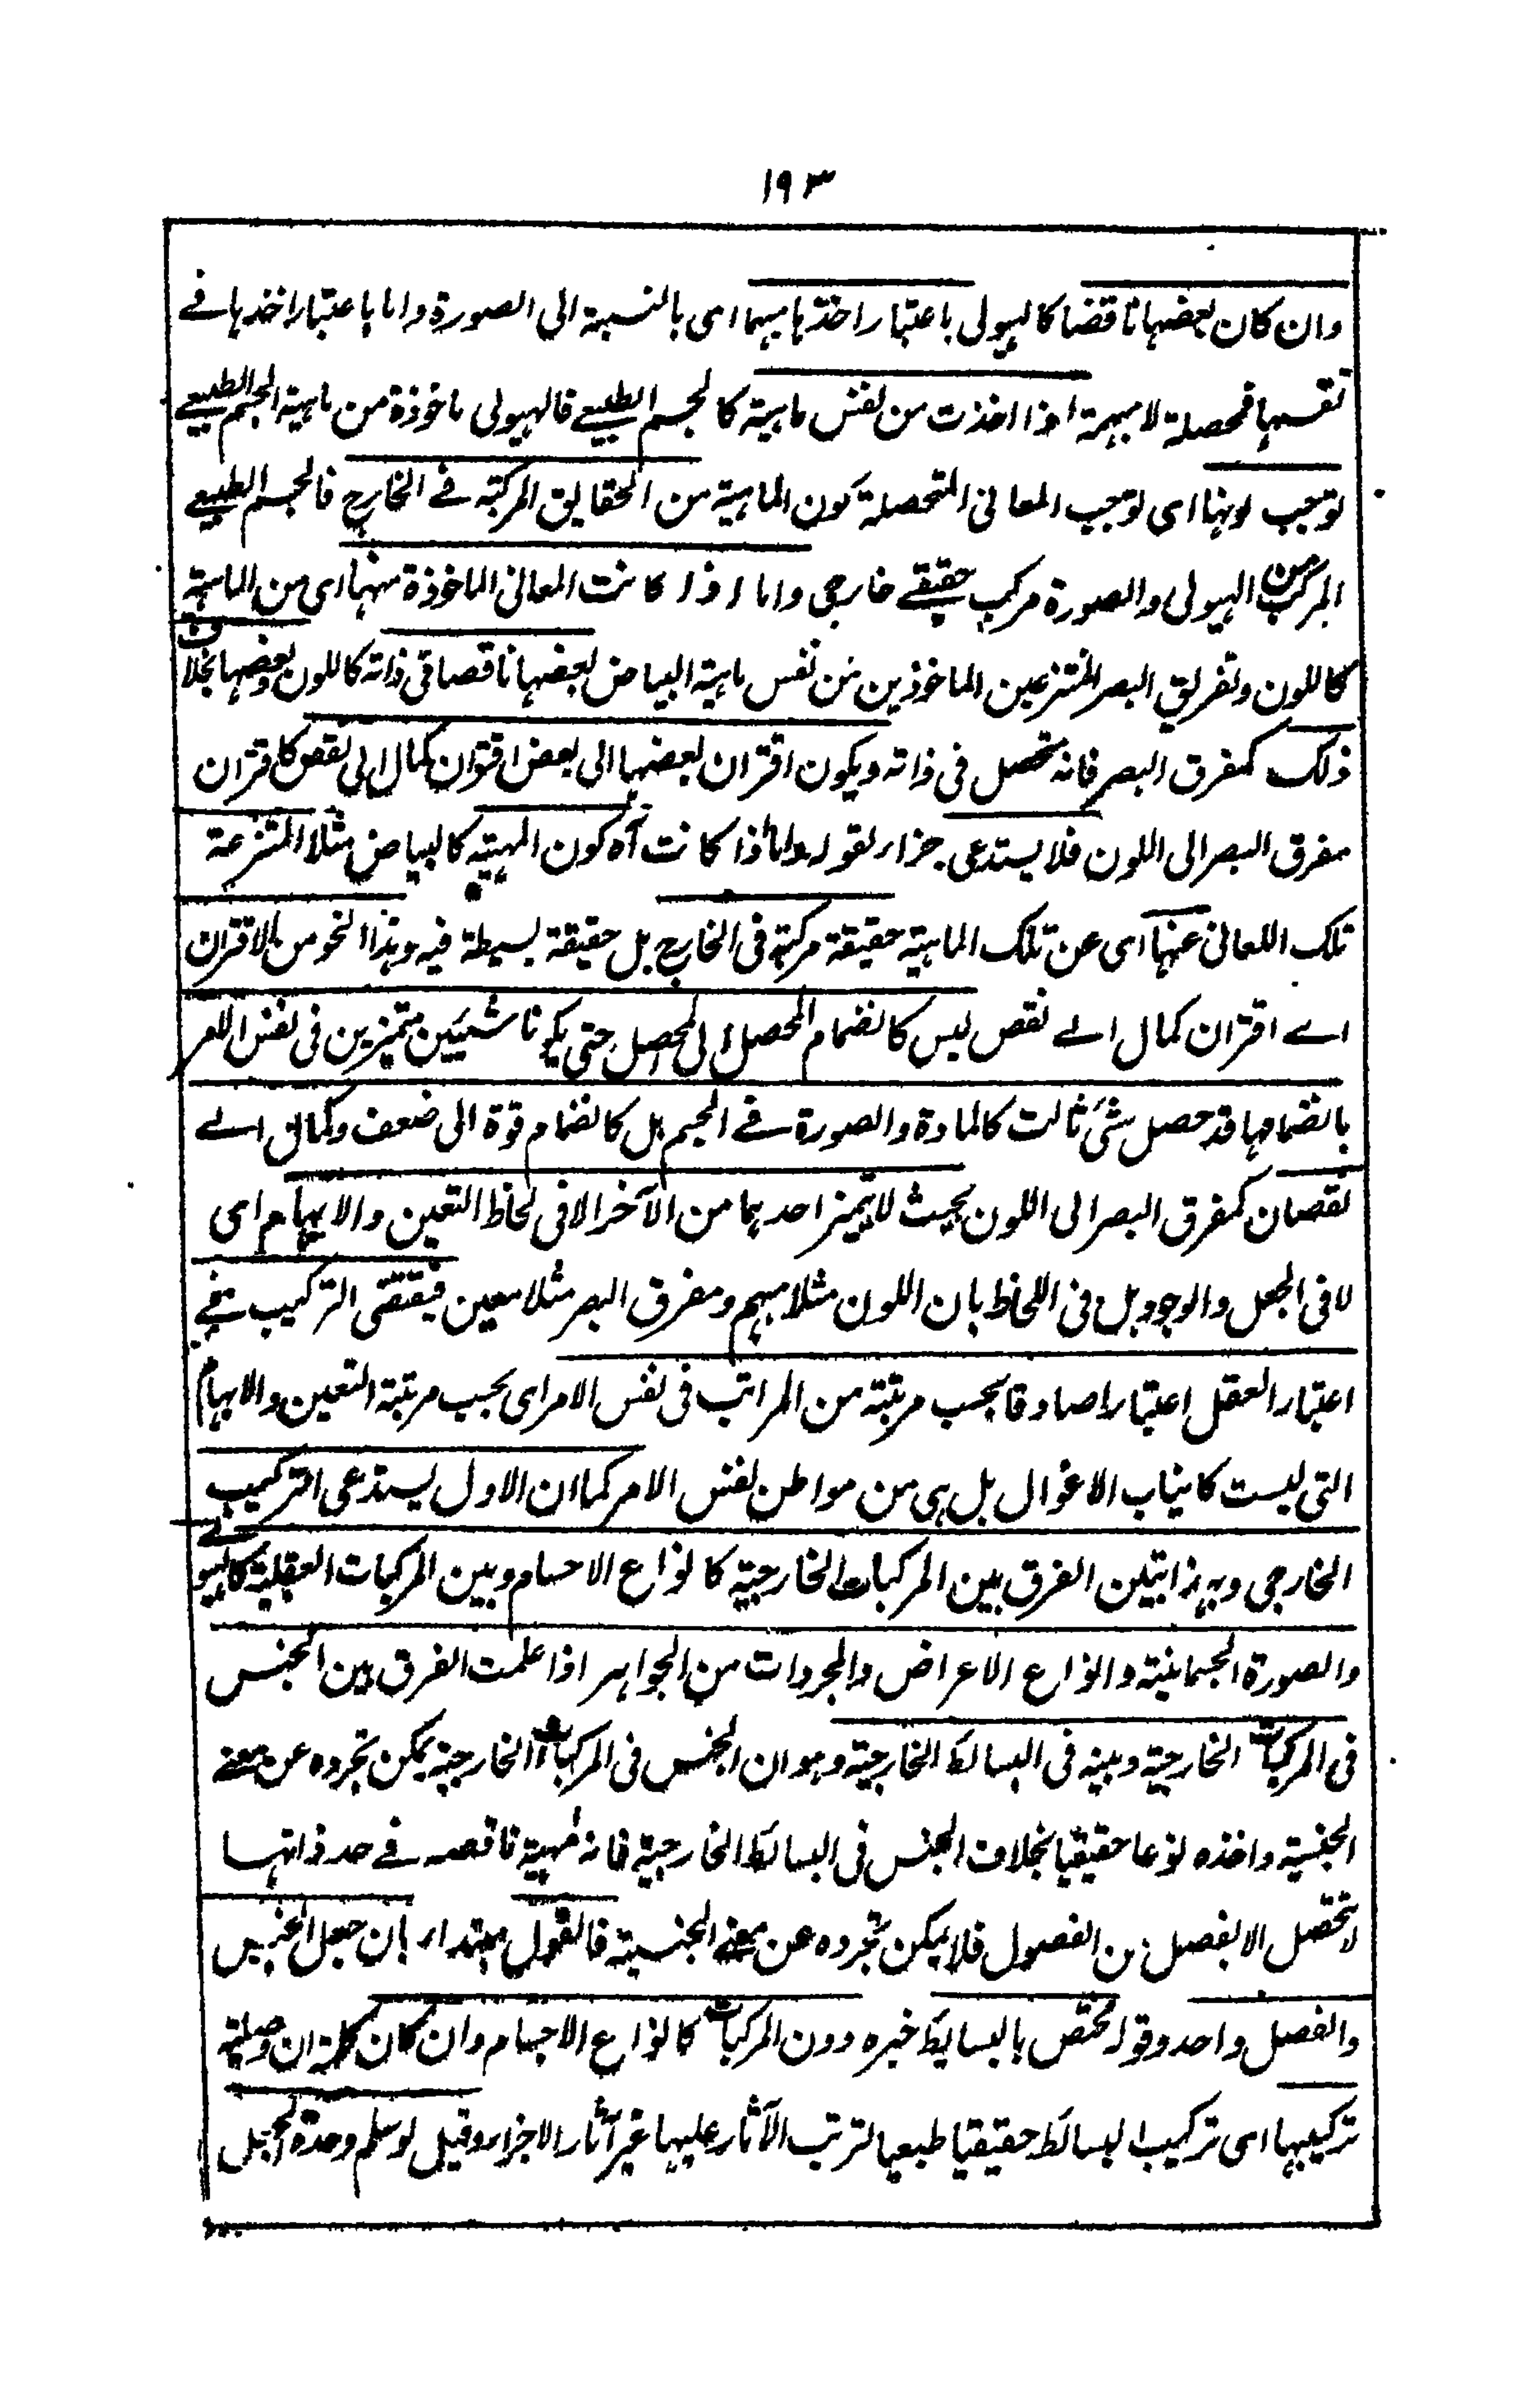 ١٩٣
وان كان بعضها ناقضا كالهيولى باعتبار اخذها مبهما اى بالنسبة الى الصورة واما باعتبار اخذها فے
نفسها فمحصلة لا مبهمة اذا اخذت من نفس ماهية كالجسم الطبيعے فالهيولى ماخوذة من ماهية الجسم الطبيعے
توجب لونها اى توجب المعانى المتحصلة كون الماهية من الحقايق المركبة فے الخارج فالجسم الطبيعے
المركب من الهيولى والصورة مركب حقيقے خارجى واما اذا كانت المعانى الماخوذة منها اى من الماهية
كاللون وتفريق البصر المنتزعين الماخوذين من نفس ماهية البياض بعضها ناقصا فى ذاته كاللون وبعضها بخلاف
ذلك كمفرق البصر فانه متحصل فى ذاته ويكون اقتران بعضها الى بعض اقتران كمال الى نقص كاقتران
مفرق البصر الى اللون فلا يستدعى جزاء لقوله واما اذا كانت آه كون المهية كالبياض مثلا المنتزعة
تلك اللعانى عنها اى عن تلك الماهية حقيقة مركبة فى الخارج بل حقيقة بسيطة فيه وهذا النحو من الاقتران
اے اقتران كمال الے نقص ليس كانضمام المحصل الى المحصل حتى يكونا شيئين متميزين فى نفس الامر
بانضمامها قد حصل شئ ثالث كالمادة والصورة فے الجسم بل كانضمام قوة الى ضعف وكمال الے
نقصان كمفرق البصر الى اللون بحيث لا يتميز احدهما من الآخر الا فى لحاظ التعين والابهام اى
لا فى الجعل والوجود بل فى اللحاظ بان اللون مثلا مبهم ومفرق البصر مثلا معين فيقتضى التركيب فے
اعتبار العقل اعتبارا صادقا بحسب مرتبة من المراتب فى نفس الامر اى بحسب مرتبة التعين والابهام
التى ليست كانياب الاغوال بل هى من مواطن نفس الامر كما ان الاول يستدعى التركيب
الخارجى وبهذا تبين الفرق بين المركبات الخارجية كانواع الاجسام وبين المركبات العقلية كالهيولے
والصورة الجسمانية وانواع الاعراض والمجردات من الجواهر اذا علمت الفرق بين الجنس
فى المركبات الخارجية وبينه فى البسائط الخارجية وهو ان الجنس فى المركبات الخارجية يمكن تجرده عن معنے
الجنسية واخذه نوعا حقيقيا بخلاف الجنس فى البسائط الخارجية فانه مهية ناقصه فے حد ذاتها
لا تحصل الا بفصل من الفصول فلا يمكن تجرده عن معنے الجنسية فالقول مبتداء بان جعل الجنس
والفصل واحد وقوله مختص بالبسايط خبره دون المركبات كانواع الاجسام وان كان كلمة ان وصلية
تركيبها اى تركيب البسائط حقيقيا طبعيا لترتب الآثار عليها غير آثار الاجزاء وقيل لو سلم وحدة الجعل